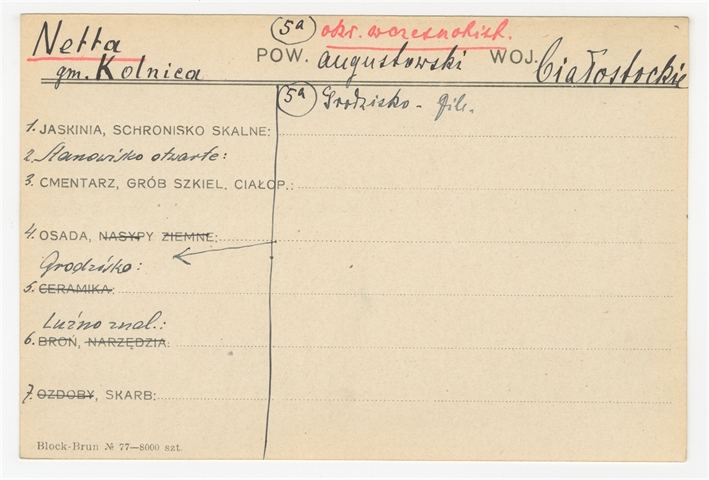 Netta
gm. Kolnica
5a okr. wczesnohist.
POW. augustowski WOJ. Białostockie
5a Grodzisko - file.
1. JASKINIA, SCHRONISKO SKALNE:
2. Stanowisko otwarte:
3. CMENTARZ, GRÓB SZKIEL. CIAŁOP.:
4. OSADA, NASYPY ZIEMNE:
Grodzisko:
5. CERAMIKA:
Luźno znal.:
6. BROŃ, NARZĘDZIA:
7. OZDOBY, SKARB:
Block-Brun № 77—8000 szt.